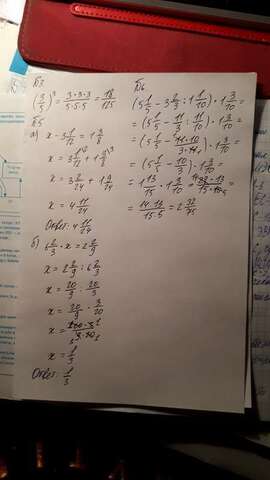 №3
(3/5)³ = 3·3·3/5·5·5 = 18/125
№5
а) x - 3 1/12 = 1 3/8
x = 3 1/12 + 1 3/8
x = 3 2/24 + 1 9/24
x = 4 11/24
Ответ: 4 11/24
б) 6 2/3 · x = 2 2/9
x = 2 2/9 : 6 2/3
x = 20/9 : 20/3
x = 20/9 · 3/20
x = 1/3
Ответ: 1/3
№6
(5 1/5 - 3 2/3 : 1 1/10) · 1 3/10 =
= (5 1/5 - 11/3 : 11/10) · 1 3/10 =
= (5 1/5 - 11·10/3·11) · 1 3/10 =
= (5 1/5 - 10/3) · 1 3/10 =
= 1 13/15 · 1 3/10 =
= 14·13/15·5 = 2 32/75